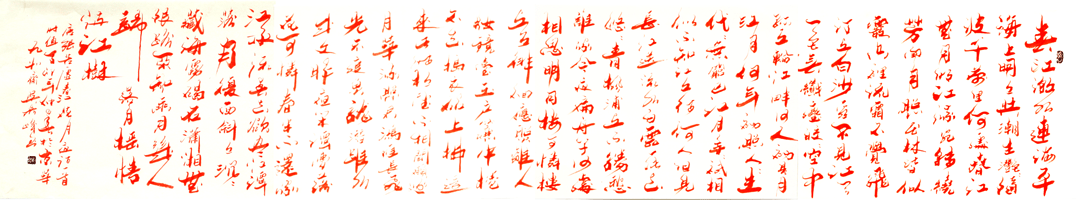 春江潮水連海平
海上明月共潮生灩灩隨
波千萬里何處春江
無月明江流宛轉繞
芳甸月照花林皆似
霰空里流霜不覺飛
汀上白沙看不見江天
一色無纖塵皎皎空中
孤月輪江畔何人初見月
江月何年初照人人生
代代無窮已江月年年祗相
似不知江月待何人但見
長江送流水白雲一片去
悠悠青楓浦上不勝愁
誰家今夜扁舟子何處
相思明月樓可憐樓
上月徘徊應照離人
妝鏡臺玉戶簾中卷
不去搗衣砧上拂還
來此時相望不相聞願逐
月華流照君鴻雁長飛
光不度魚龍潛躍水
成文昨夜閑潭夢落
花可憐春半不還家
江水流春去欲盡江潭
落月復西斜斜月沉沉
藏海霧碣石瀟湘無
限路不知乘月幾人
歸落月搖情
滿江樹